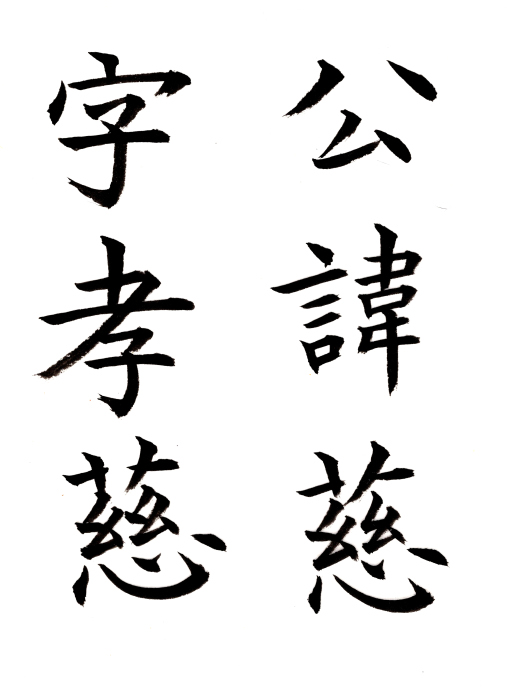 公諱慈
字孝慈